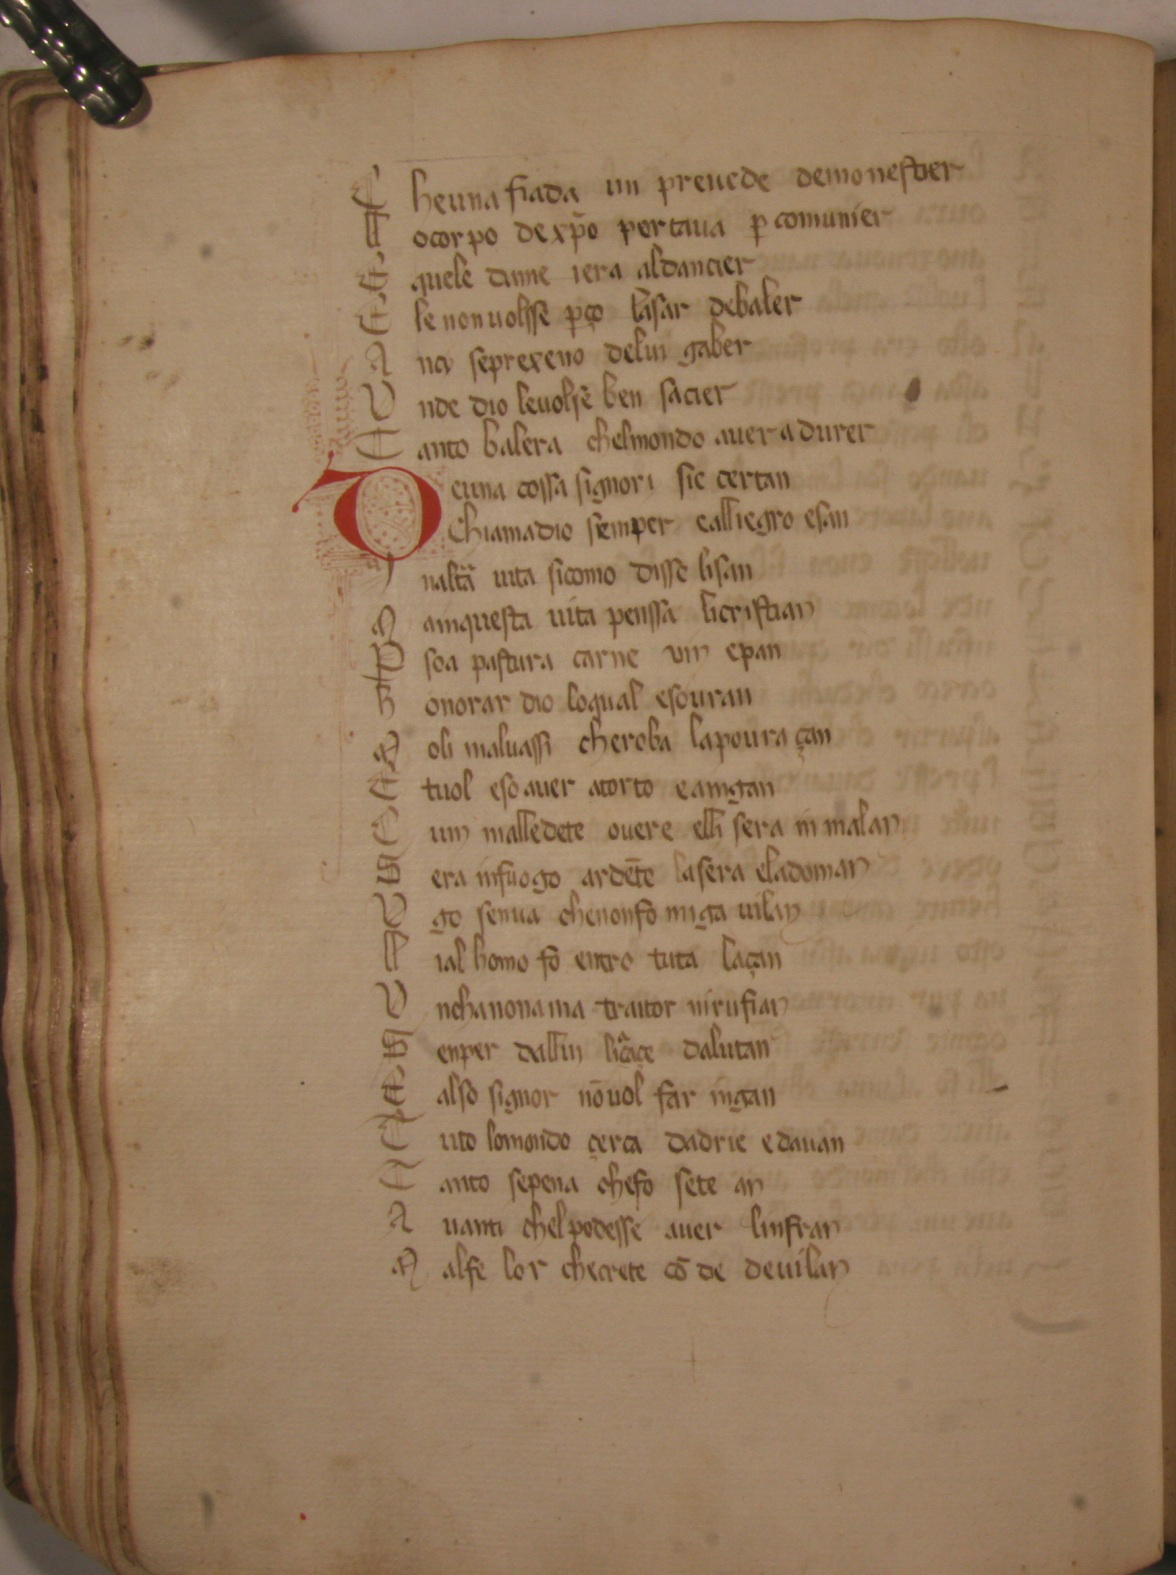 C heuna fiada un preuede demonestier
L ocorpo dexp̄o portaua ꝑ comunier
E quele dame iera aldancier
E le nonuolsse ꝑço lasar debaler
A nçi seprexeno delui gaber
V nde dio leuolsē ben sacier
T anto balera chelmondo auer a durer
D euna cossa signori sie certan
Chiamadio semper ealliegro esan
I naltā uita sicomo disse lisan
M ainquesta uita penssa licristian
P soa pastura carne vin epan
H onorar dio loqual esouran
M oli maluassi cheroba lapoura çan
E tuol eso auer atorto eaingan
C um malledete ouere elli sera in malan
S era infuogo ardēte lasera eladoman
V go senua chenonfo miga uilan
L ial homo fo entro tuta laçan
V nchanonama traitor nirufian
S enper dalliu licāçe dalutan
E also signor nōuol far ingan
T uto lomondo çerca dadrie edauan
T anto sepena chefo sete an
A uanti chelpodesse auer linfran
M alfe lor checrete cō de deuilan